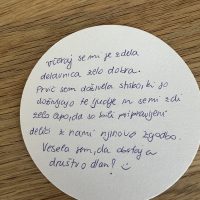 včeraj se mi je zdela
delavnica zelo dobra.
Prvič sem doživela stisko, ki jo
doživljajo te ljudje in se mi zdi
zelo lepo, da so bili pripravljeni
deliti z nami njihovo zgodbo.
Vesela sem, da obstaja
društvo